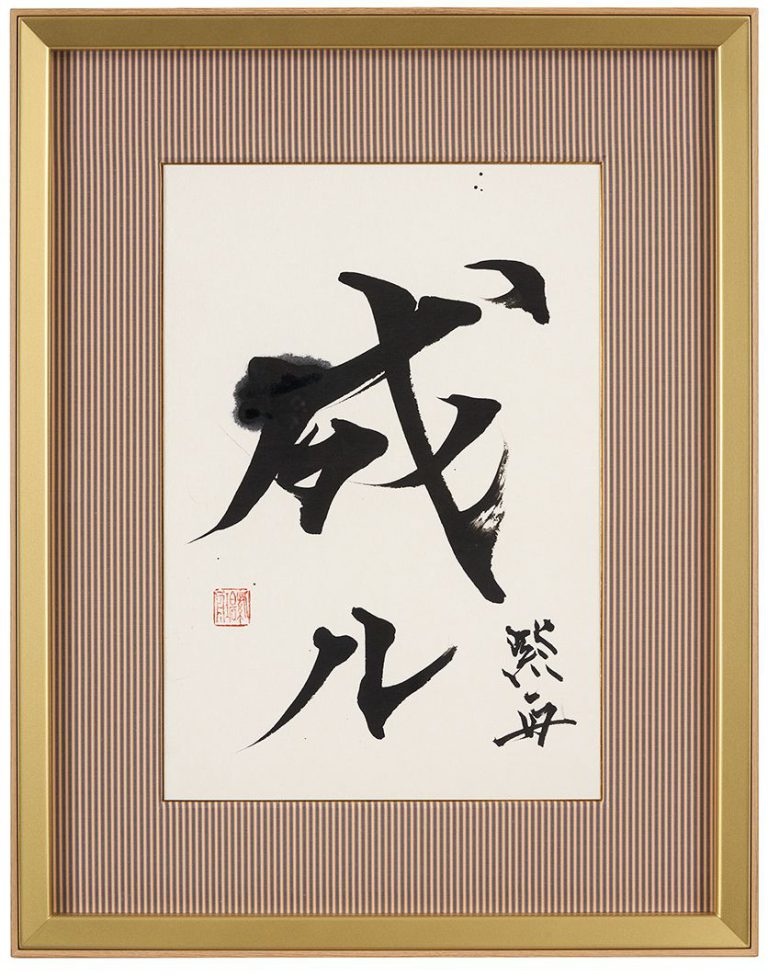 成ル
紫舟